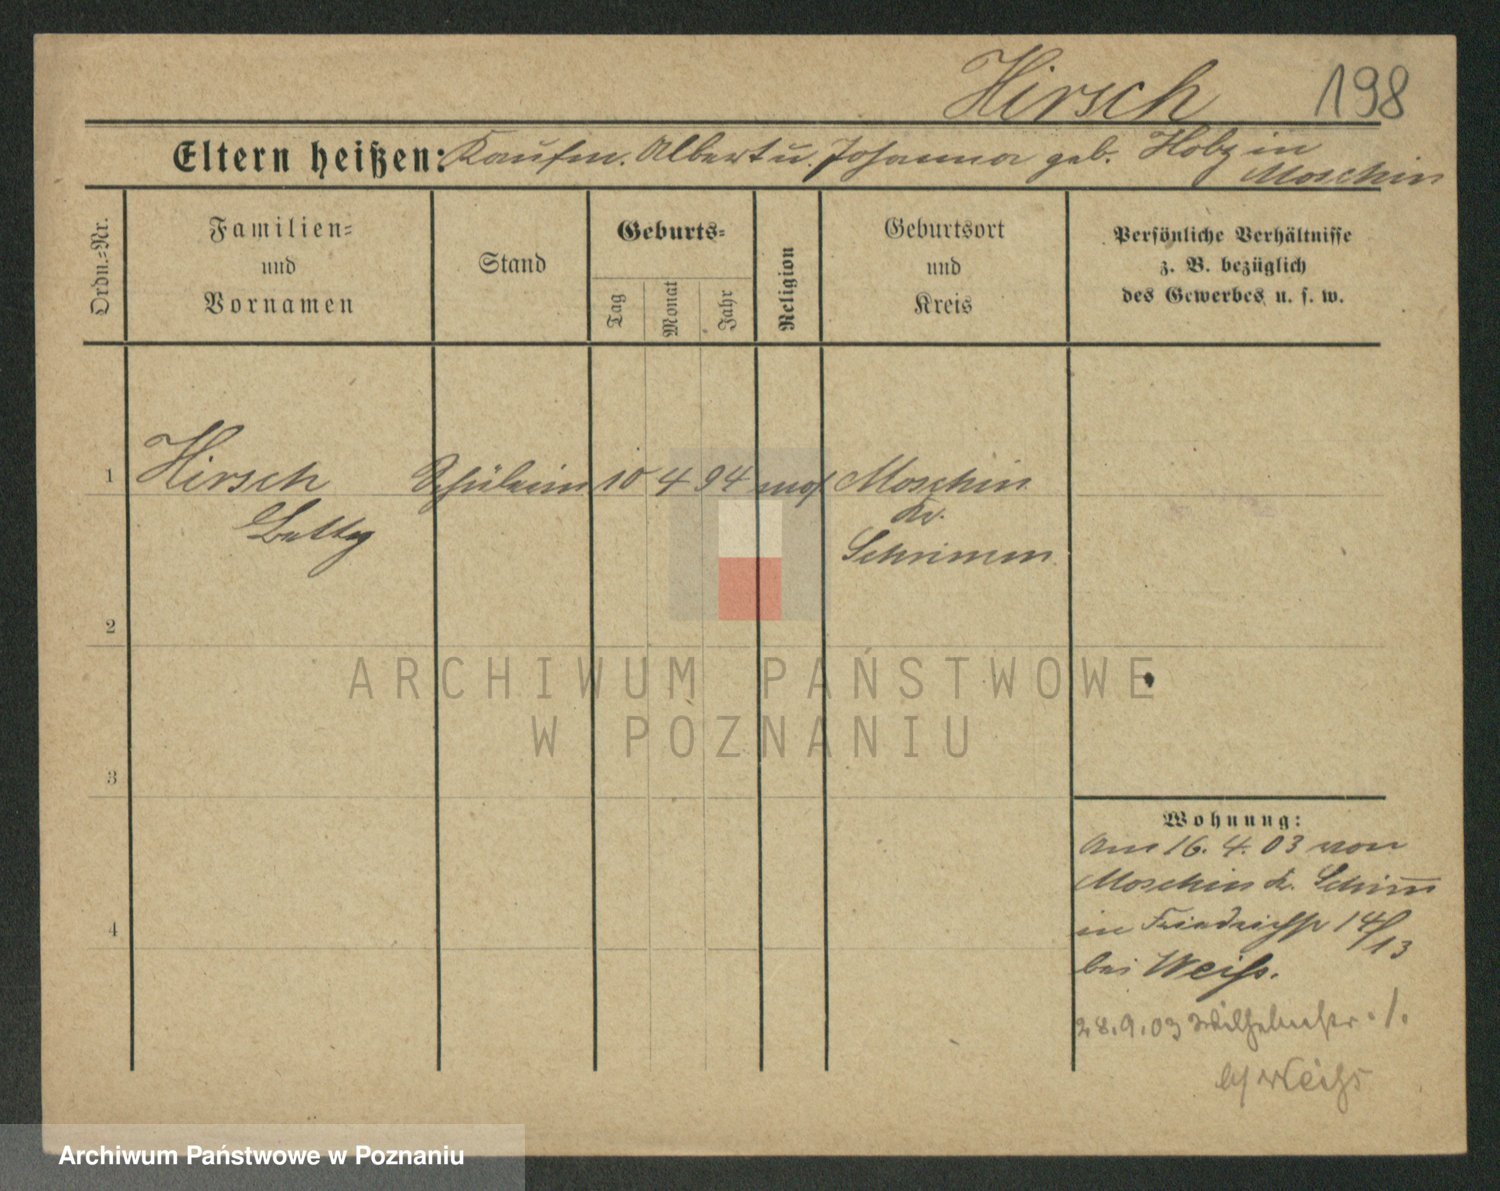 Hirsch 198
Eltern heißen: Kaufm. Albert u. Johanna geb. in
Moschin
Ordn.-Nr.
Familien-
und
Vornamen
Stand
Geburts-
Tag
Monat
Jahr
Religion
Geburtsort
und
Kreis
Persönliche Verhältnisse
z. B. bezüglich
des Gewerbes u. s. w.
1 Hirsch Schülerin 10 4 94 mos Moschin
Betty Kr.
Schrimm
2
3
4
Wohnung:
Am 16. 4. 03 von
Moschin Kr. Schrimm
in Friedrichstr 14/13
bei Weiß.
28.9.03 Wilhelmstr. 1.
b/ Weiß
ARCHIWUM PAŃSTWOWE
W POZNANIU
Archiwum Państwowe w Poznaniu